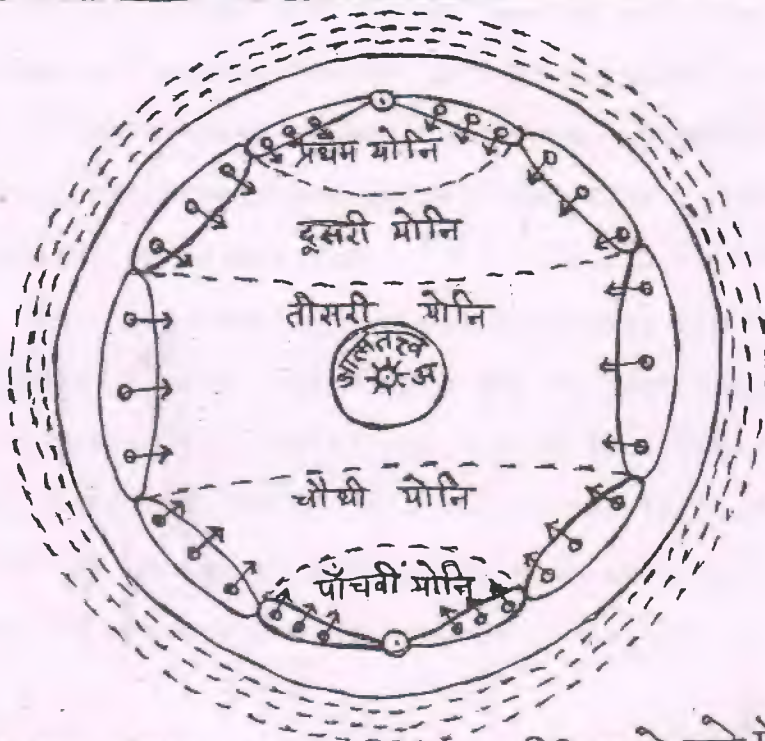 प्रथम योनि
दूसरी योनि
तीसरी योनि
आत्मतत्त्व
अ
चौथी योनि
पाँचवीं योनि